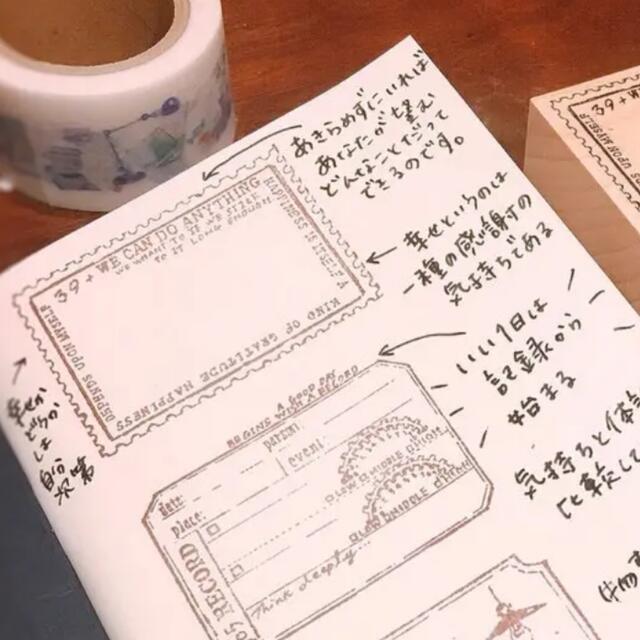 あきらめずにいれば
あなたが望む
どんなことだって
できるのです。
39+WE CAN DO ANYTHING
WE WANT TO IF WE STICK
TO IT LONG ENOUGH
HAPPINESS IS ITSELF A
KIND OF GRATITUDE HAPPINESS
DEPENDS UPON MYSELF
幸せというのは
一種の感謝の
気持ちである
自分
次第
いい1日は
記録から
始まる
A GOOD DAY
BEGINS WITH A RECORD
Date:
Place:
event:
OLAD MIDDLE
OLAD MIDDLE
RECORD
Think deeply...
気持ちと体
比較して
39+WE
UPON MYSELF